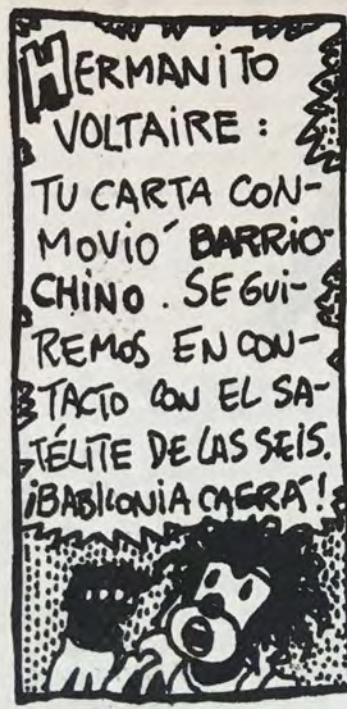 HERMANITO
VOLTAIRE:
TU CARTA CON-
MOVIÓ BARRIO-
CHINO. SEGUI-
REMOS EN CON-
TACTO CON EL SA-
TÉLITE DE LAS SEIS.
¡BABILONIA CAERÁ!